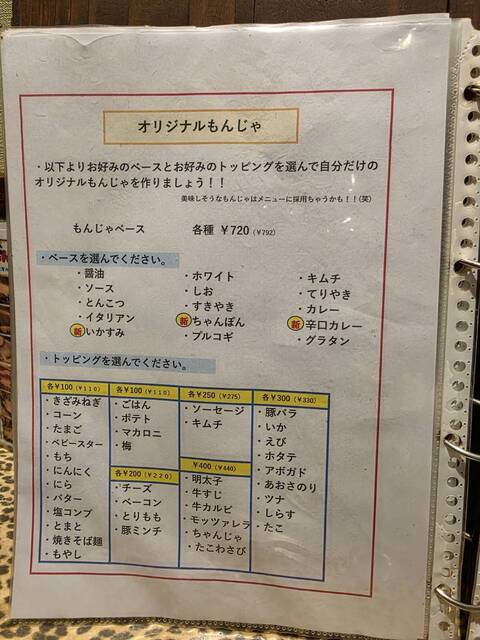 オリジナルもんじゃ
・以下よりお好みのベースとお好みのトッピングを選んで自分だけの
オリジナルもんじゃを作りましょう！！
美味しそうなもんじゃはメニューに採用ちゃうかも！！(笑)
もんじゃベース 各種 ￥720（￥792）
・ベースを選んでください。
・醤油
・ソース
・とんこつ
・イタリアン
新・いかすみ
・ホワイト
・しお
・すきやき
新・ちゃんぽん
・プルコギ
・キムチ
・てりやき
・カレー
新・辛口カレー
・グラタン
・トッピングを選んでください。
各￥100（￥110）
・きざみねぎ
・コーン
・たまご
・ベビースター
・もち
・にんにく
・にら
・バター
・塩コンブ
・とまと
・焼きそば麺
・もやし
各￥100（￥110）
・ごはん
・ポテト
・マカロニ
・梅
各￥200（￥220）
・チーズ
・ベーコン
・とりもも
・豚ミンチ
各￥250（￥275）
・ソーセージ
・キムチ
￥400（￥440）
・明太子
・牛すじ
・牛カルビ
・モッツァレラ
・ちゃんじゃ
・たこわさび
各￥300（￥330）
・豚バラ
・いか
・えび
・ホタテ
・アボガド
・あおさのり
・ツナ
・しらす
・たこ